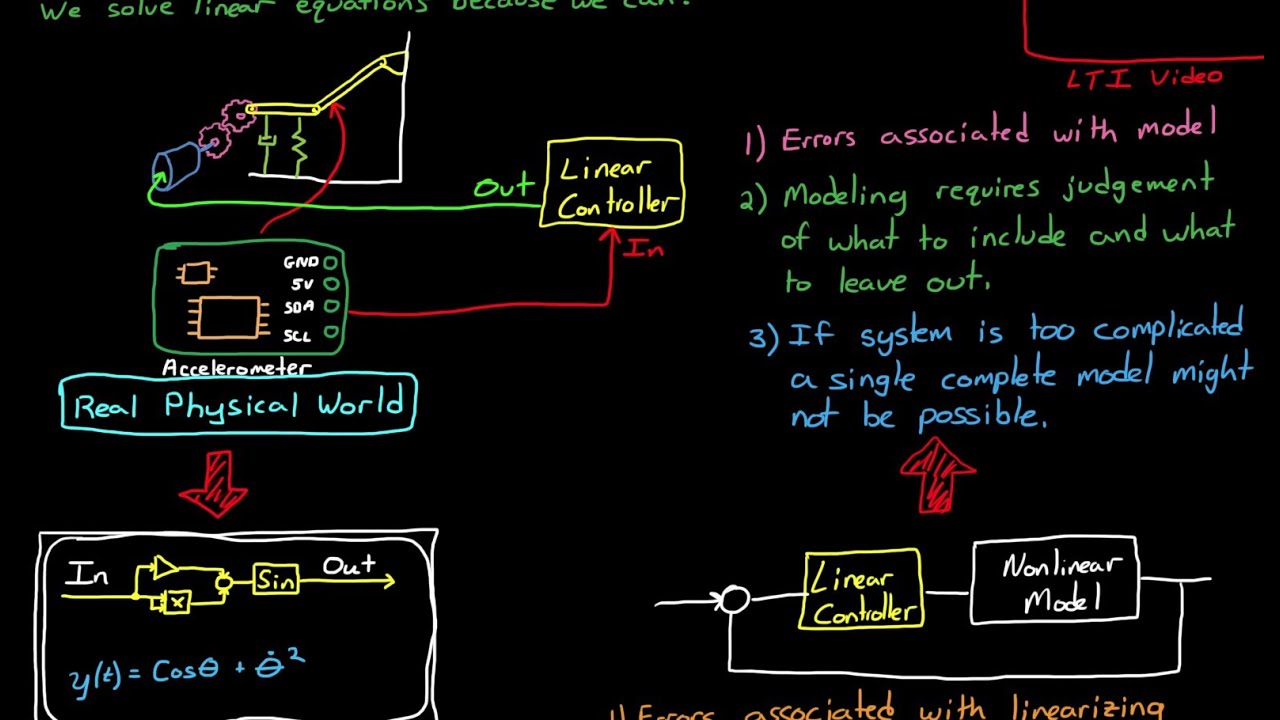 We solve linear equations because we can!
LTI Video
1) Errors associated with model
2) Modeling requires judgement
of what to include and what
to leave out.
3) If system is too complicated
a single complete model might
not be possible.
Linear
Controller
Out
In
GND
5V
SDA
SCL
Accelerometer
Real Physical World
In
X
Sin
Out
y(t) = Cosθ + θ̇²
Linear
Controller
Nonlinear
Model
1) Errors associated with linearizing